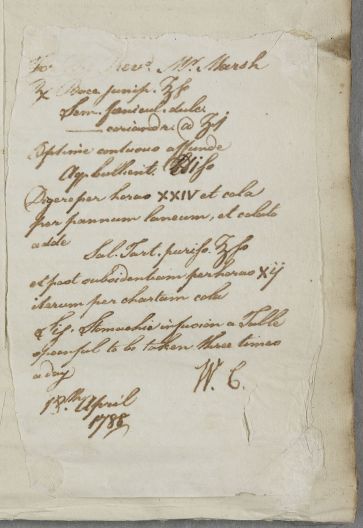 For the Revd. Mr. Marsh
Rx Bacc. junip. ℥ſs
Sem. foenicul. dulci
coriandr. a ʒj
Optime contusis affunde
Aq. bullient.
Digere per horas XXIV et cola
per pannum laneum, et colato
adde
Sal. Tart. puriss. ℥ſs
et post subsidentiam per horas xij
iterum per chartam cola
Stomachic infusion a Table
spoonful to be taken three times
a day
W. C.
18th. April
1788